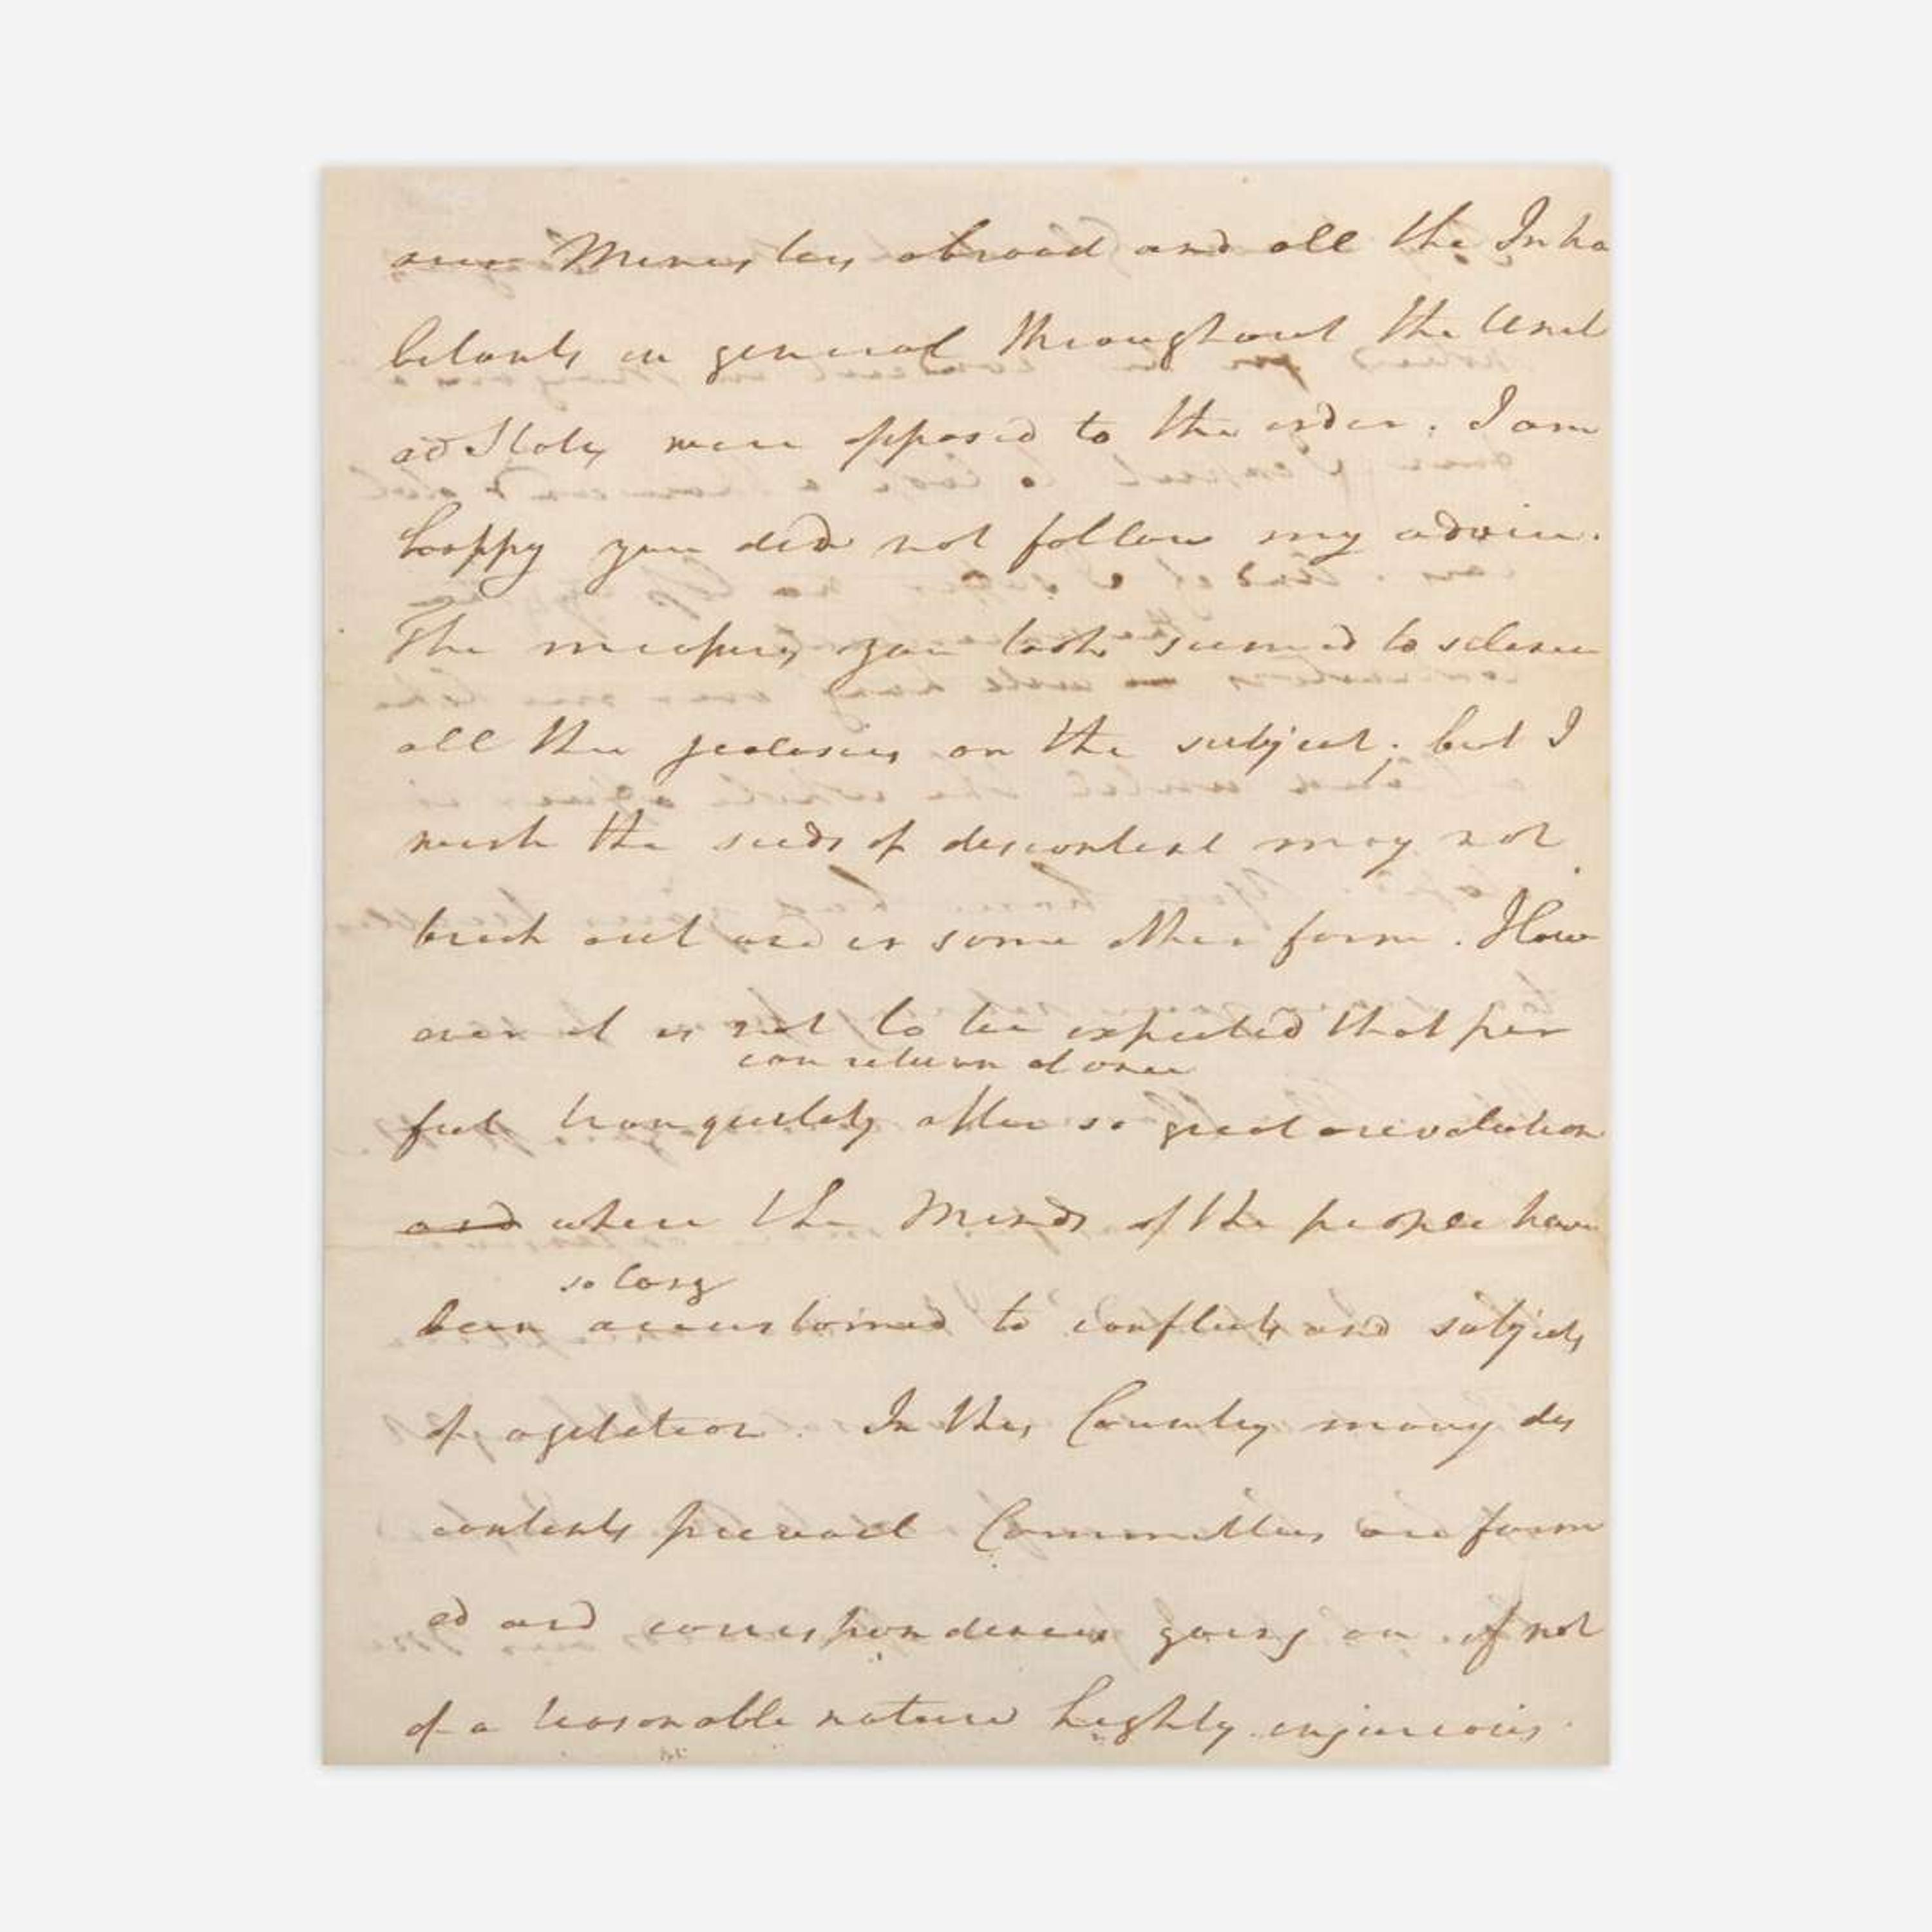 our Ministers abroad and all the Inha
bitants in general throughout the Unit
ed States were opposed to the order. I am
happy you did not follow my advice.
The measures you took seemed to silence
all the jealosies on the subject; but I
wish the seeds of discontent may not
break out in some other form. How
ever it is not to be expected that per
can return at once
fect tranquility after so great a revolution
and where the Minds of the people have
so long
been accustomed to conflicts and subjects
of agitation. In this Country many dis
contents prevail Committees are form
ed and correspondences going on if not
of a treasonable nature highly injurious